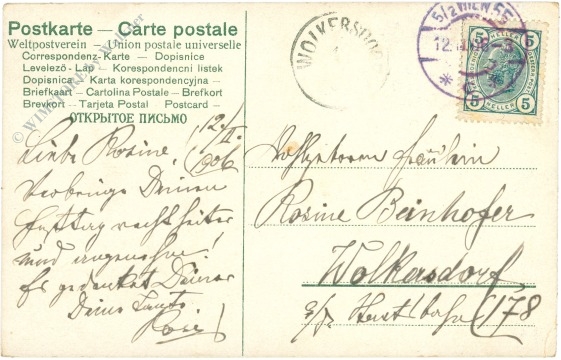 Postkarte — Carte postale
Weltpostverein — Union postale universelle
Correspondenz-Karte — Dopisnice
Levelező-Lap — Korespondencni listek
Dopisnica — Karta korespondencyjna —
Briefkaart — Cartolina Postale — Brefkort
Brevkort — Tarjeta Postal — Postcard —
ОТКРЫТОЕ ПИСЬМО
12./II.
906
Liebe Rosine,
Verbringe Deinen
Festtag recht heiter
und angenehm!
Es gedenket Deiner
Deine Tante
Rosi
Wohlgeboren Fräulein
Rosine Beinhofer
Wolkersdorf
a/d Hauptstraße 178
WOLKERSDORF
5/2 WIEN 55
12
HELLER
5 5
5 5
HELLER
© WIMPASSING